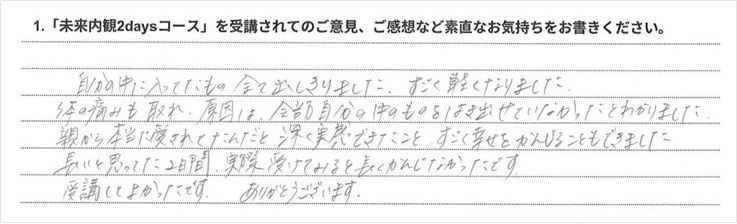 1.「未来内観2daysコース」を受講されてのご意見、ご感想など素直なお気持ちをお書きください。
自分の中に入ってたもの全て出しきりました。すごく軽くなりました。
体の痛みも取れ、原因は、全部自分の中のものをはき出せていなかったとわかりました。
親から本当に愛されてたんだと深く実感できたこと、すごく幸せをかんじることもできました
長いと思ってた2日間、実際受けてみると長くかんじなかったです。
受講してよかったです。ありがとうございます。